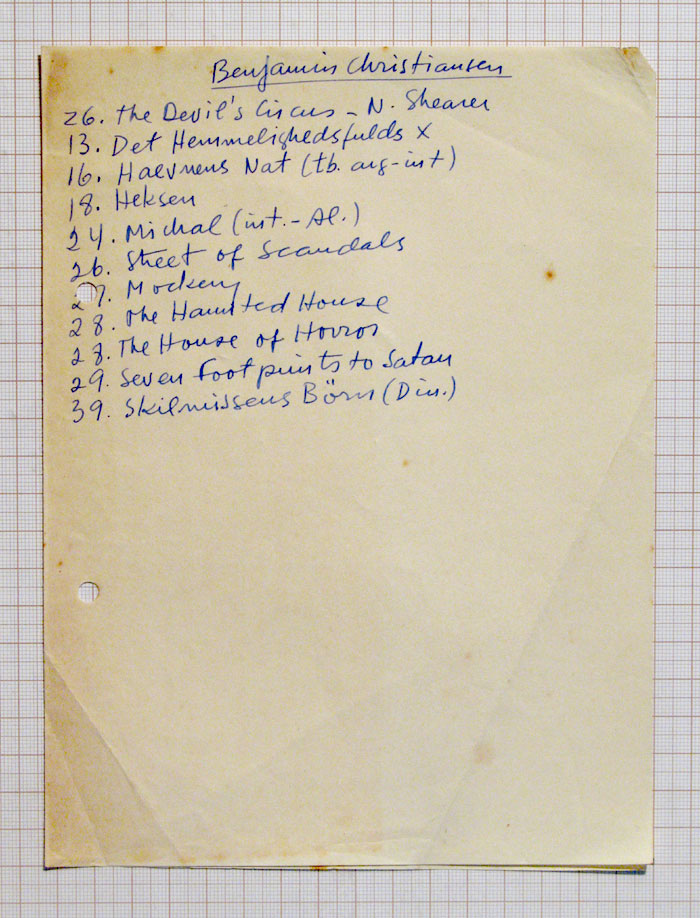 Benjamin Christiansen
26. The Devil's Circus - N. Shearer
13. Det Hemmelighedsfulds X
16. Haevnens Nat (tb. arg-int)
18. Heksen
24. Michal (int.-Al.)
26. Street of Scandals
27. Mockery
28. The Haunted House
28. The House of Horror
29. Seven Footprints to Satan
39. Skilmissens Börn (Din.)